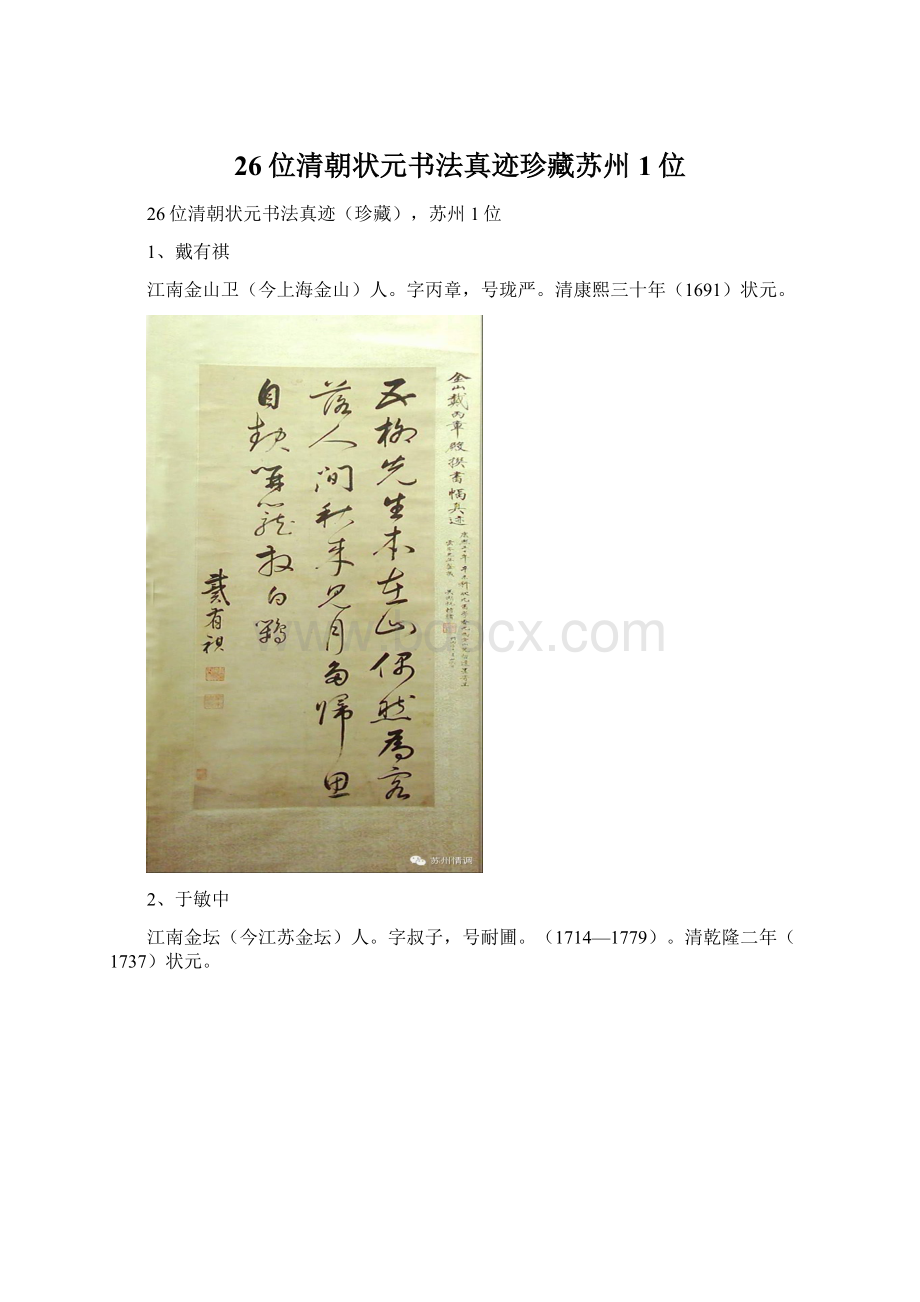 26位清朝状元书法真迹珍藏苏州1位
26位清朝状元书法真迹（珍藏），苏州1位
1、戴有祺
江南金山卫（今上海金山）人。字丙章，号珑严。清康熙三十年（1691）状元。
金山戴丙章殿撰書幅真迹
五柳先生本在山偶然爲客
落人間秋来見月多歸思
自起開籠放白鷴
戴有祺
www.bdocx.com
苏州情调
2、于敏中
江南金坛（今江苏金坛）人。字叔子，号耐圃。（1714—1779）。清乾隆二年（
1737）状元。